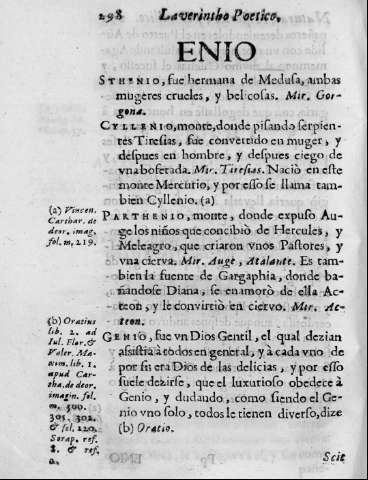 298 Laverintho Poetico,
ENIO
STHENIO, fue hermana de Medusa, ambas
mugeres crueles, y belicosas. Mir. Gor-
gona.
CYLLENIO, monte, donde pisando serpien-
tes Tiresias, fue convertido en muger, y
despues en hombre, y despues ciego de
vna bofetada. Mir. Tiresias. Naciò en este
monte Mercurio, y por esso se llama tam-
bien Cyllenio. (a)
(a) Vincen.
Carthar. de
deor. imag.
fol. m, 219.
PARTHENIO, monte, donde expuso Au-
ge los niños que concibiò de Hercules, y
Meleagro, que criaron vnos Pastores, y
vna cierva. Mir. Auge, Atalante. Es tam-
bien la fuente de Gargaphia, donde ba-
ñandose Diana, se enamorò de ella Ac-
teon, y le convirtiò en ciervo. Mir. Ac-
teon.
(b) Oratius
lib. 2. ad
Iul. Flor. &
Valer. Ma-
xim. lib. 1.
apud Car-
tha. de deor.
imagin. fol.
m. 300.
301. 302.
& fol. 120.
Sorap. ref.
1. & ref.
2.
GENIO, fue vn Dios Gentil, el qual dezian
assistia à todos en general, y à cada vno de
por si: era Dios de las delicias, y por esso
suele dezirse, que el luxurioso obedece à
Genio, y dudando, como siendo el Ge-
nio vno solo, todos le tienen diverso, dize
(b) Oratio.
Scit